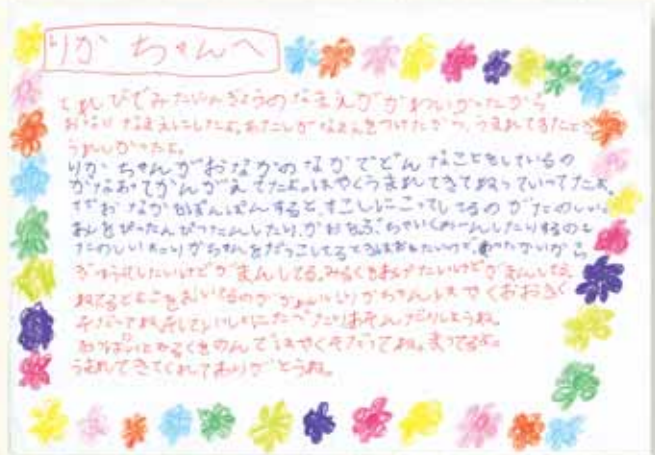 りか ちゃんへ
てれびでみたにんぎょうのなまえがかわいかったから
おなじなまえにしたよ。あたしがなまえをつけたから、うまれてきたとき
うれしかったよ。
りかちゃんがおなかのなかでどんなことをしているの
かなあてかんがえてたよ。はやくうまれてきてねっていってたよ。
おなかをぽんぽんすると、すこしにこってしてるのがたのしい。
あしをぴったんぴったんしたり、かおを したりするのも
たのしい りかちゃんをだっこしてるときはおもたいけど、あったかいから
ぎゅうってしたいけどがまんしてる。みるくをあげたいけどがまんしてる。
ねてるとこをみているのがかわいい りかちゃんはやくおおきく
そだってね。そしていっしょに たりあそんだりしようね。
おっぱいとみるくをのんではやくそだってね。まってるよ。
うまれてきてくれてありがとうね。